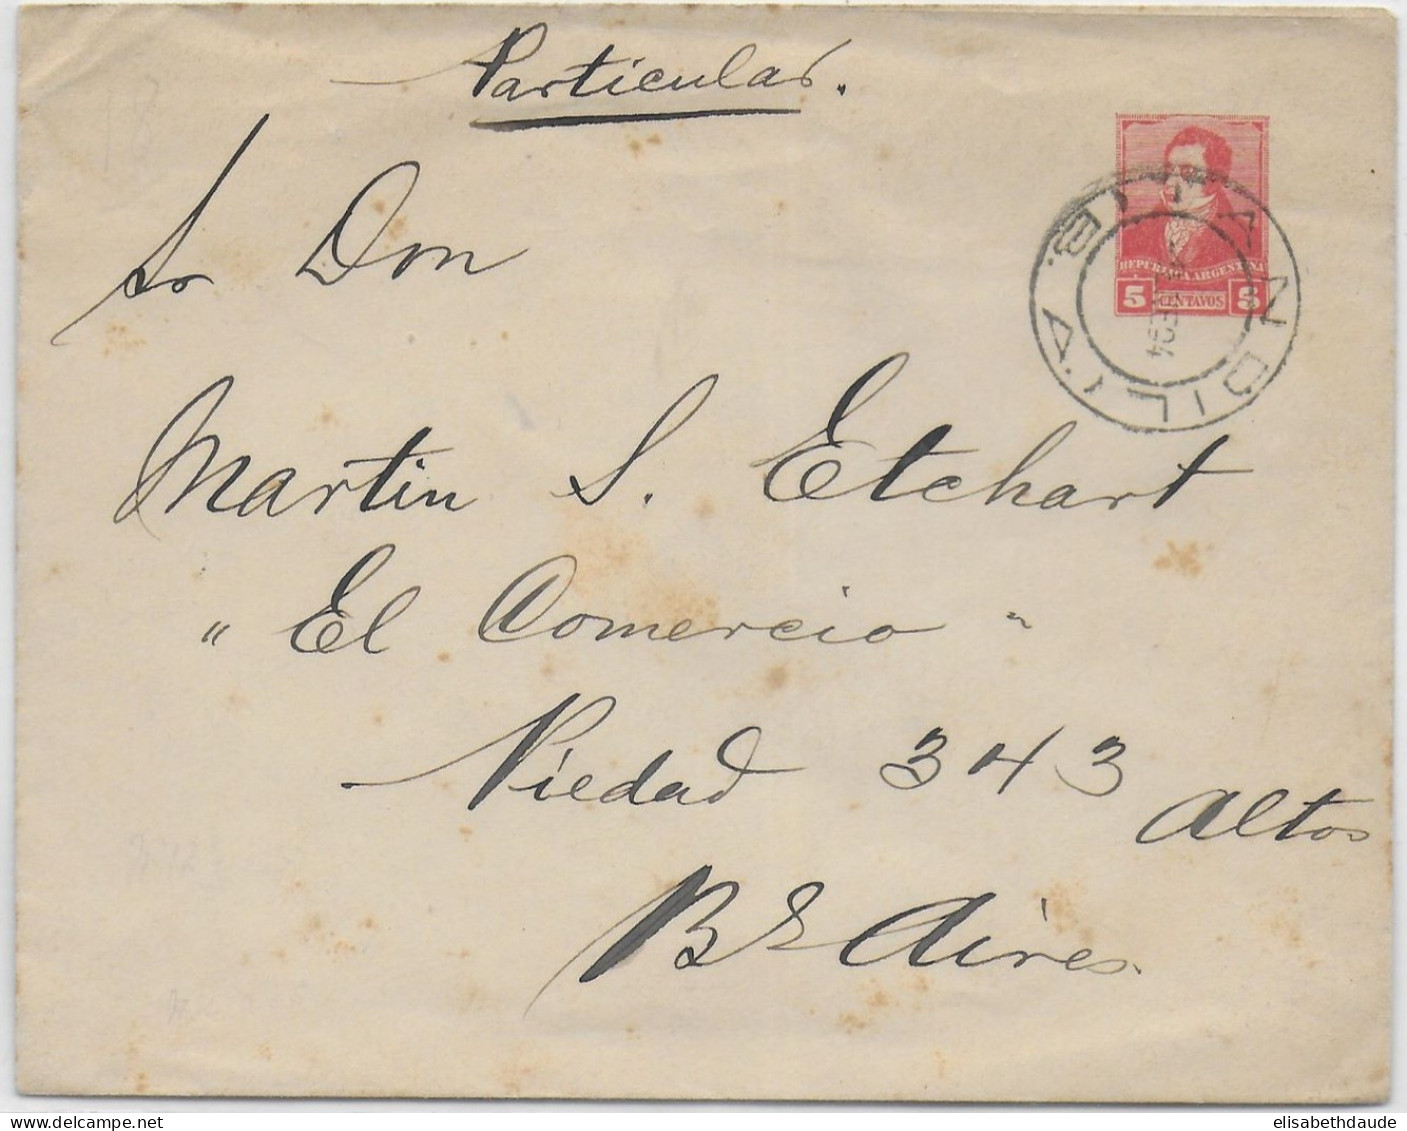 Particular.
Sr Don
Martin S. Etchart
"El Comercio"
Piedad 343
Altos
Bs Aires.
REPUBLICA ARGENTINA
5 CENTAVOS 5
TANDIL
B. A.
elisabethdaude